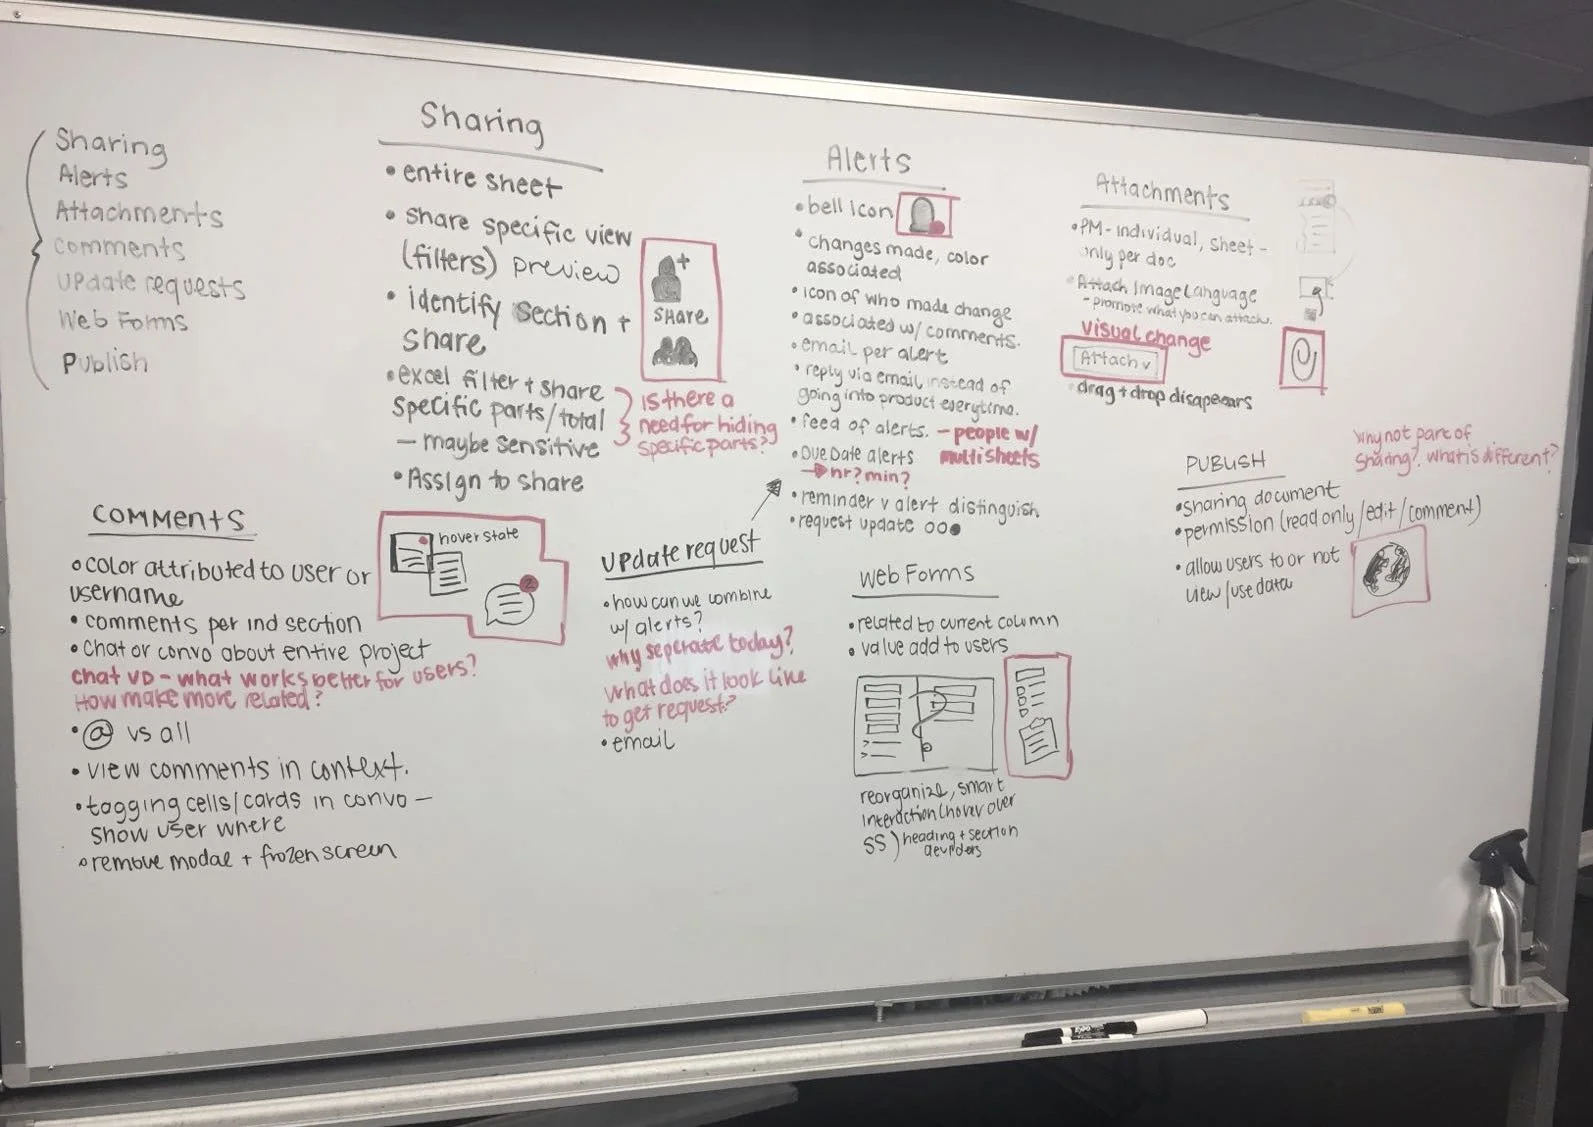 Sharing
Alerts
Attachments
comments
update requests
Web Forms
Publish
Sharing
• entire sheet
• share specific view
(filters) preview
• identify section +
share
• excel filter + share
specific parts/total
— maybe sensitive
• Assign to share
+
SHARE
Is there a
need for hiding
specific parts?
Alerts
• bell icon
• changes made, color
associated
• icon of who made change
• associated w/ comments.
• email per alert
• reply via email instead of
going into product everytime.
• feed of alerts. — people w/
multi sheets
• Due Date alerts
hr? min?
• reminder v alert distinguish
• request update
Attachments
• PM - individual, sheet -
only per doc
• Attach Image Language
- promote what you can attach.
visual change
Attach v
• drag + drop disapears
COMMENTS
• color attributed to user or
username
• comments per ind section
• chat or convo about entire project
chat VD - what works better for users?
How make more related?
• @ vs all
• view comments in context.
• tagging cells/cards in convo —
show user where
• remove modal + frozen screen
hover state
2
update request
• how can we combine
w/ alerts?
why seperate today?
what does it look like
to get request?
• email
Web Forms
• related to current column
• value add to users
reorganize, smart
interaction (hover over
SS) heading + section
PUBLISH
• sharing document
• permission (read only/edit/comment)
• allow users to or not
view/use data
Why not part of
sharing? what is different?
EXPO